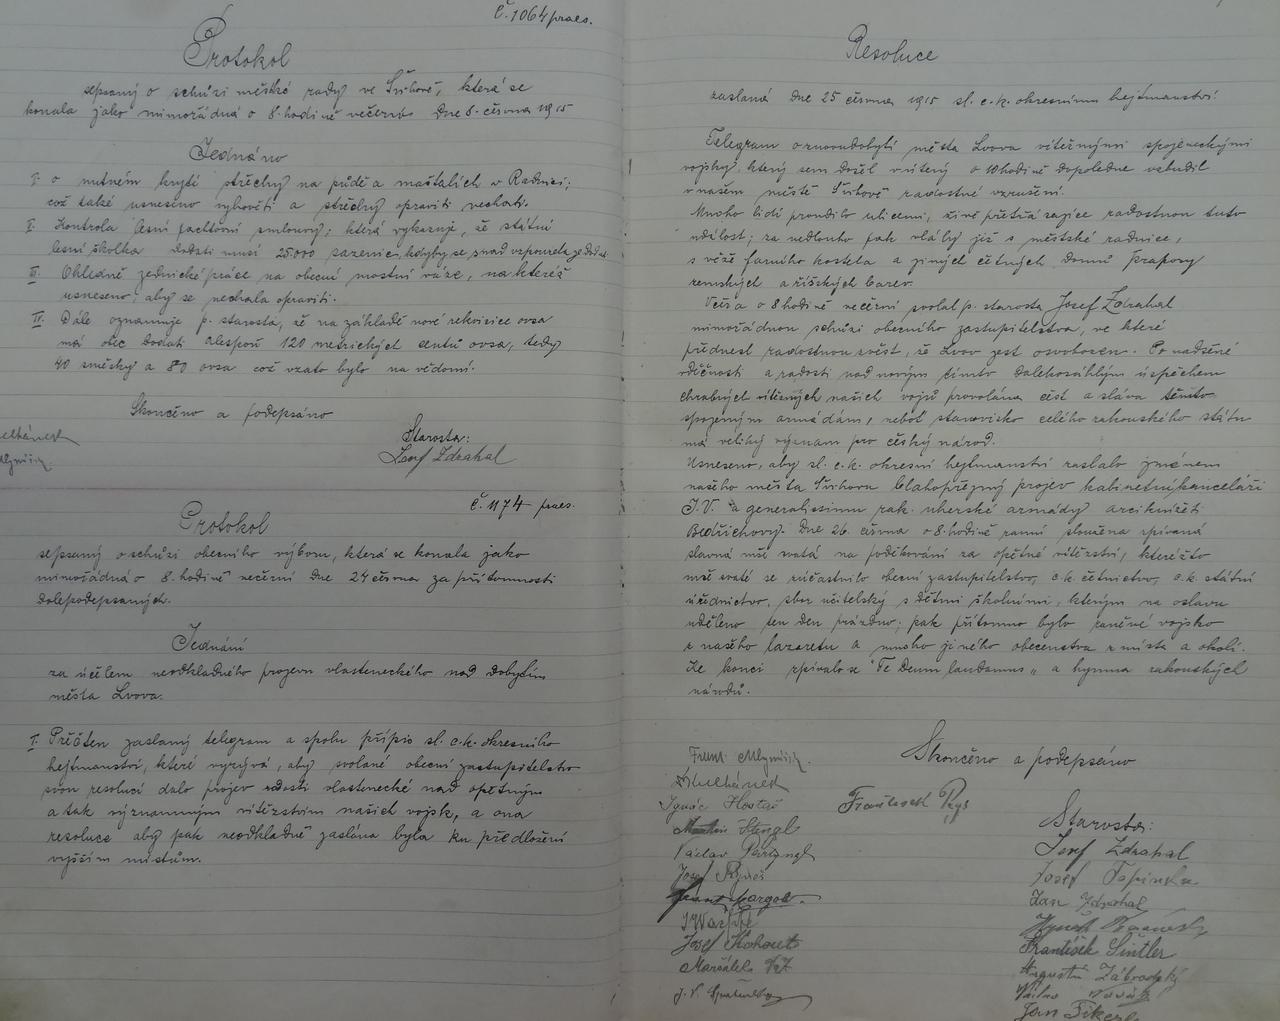 Č. 1064 praes.
Protokol
sepsaný o schůzi městské rady ve Švihově, která se
konala jako mimořádná o 8. hodině večerní dne 8. června 1915
Jednáno
I. o nutném krytí střechy na půdě a maštalích v Radnici;
což také usneseno vyhověti a střechy opraviti nechati.
II. Kontrola lesní pachtovní smlouvy; která vykazuje, že státní
lesní školka dodati musí 25.000 sazenic, kdyby se snad vzpouzela je dodati.
III. Ohledně zednické práce na obecní mostní váze, na kteréž
usneseno, aby se nechala opraviti.
IV. Dále oznamuje p. starosta, že na základě nové rekvisice ovsa
má obec dodati alespoň 120 metrických centů ovsa, tedy
40 směsky a 80 ovsa což vzato bylo na vědomí.
Skončeno a podepsáno
Starosta:
Josef Zdrahal
Č. 1174 praes.
Protokol
sepsaný o schůzi obecního výboru, která se konala jako
mimořádná o 8. hodině večerní dne 24 června za přítomnosti
dolepodepsaných.
Jednání
za účelem neodkladného projevu vlasteneckého nad dobytím
města Lvova.
I. Přečten zaslaný telegram a spolu přípis sl. c.k. okresního
hejtmanství, které vyzývá, aby svolané obecní zastupitelstvo
svou resolucí dalo projev radosti vlastenecké nad opětným
a tak významným vítězstvím našich vojsk, a ona
resoluce aby pak neodkladně zaslána byla ku předložení
vyšším místům.
Resoluce
zaslaná dne 25 června 1915 sl. c.k. okresnímu hejtmanství:
Telegram o znovudobytí města Lvova vítěznými spojeneckými
vojsky, který sem došel v úterý o 10 hodině dopoledne vzbudil
v našem městě Švihově radostné vzrušení.
Mnoho lidí proudilo ulicemi, živě přetřásajíce radostnou tuto
událost; za nedlouho pak vlály již s městské radnice,
s věže farního kostela a jiných četných domů prapory
zemských a říšských barev.
Večer o 8 hodině večerní svolal p. starosta Josef Zdrahal
mimořádnou schůzi obecního zastupitelstva, ve které
přednesl radostnou zvěst, že Lvov jest osvobozen. Po nadšené
vděčnosti a radosti nad novým tímto dalekosáhlým úspěchem
chrabrých vítězných našich vojů provolána čest a sláva těmto
spojeným armádám, neboť stanovisko celého rakouského státu
má veliký význam pro český národ.
Usneseno, aby sl. c.k. okresní hejtmanství zaslalo jménem
našeho města Švihova blahopřejný projev kabinetní kanceláři
J.V. a generalissimu rak. uherské armády arciknížeti
Bedřichovi. Dne 26. června o 8 hodině ranní sloužena zpívaná
slavná mše svatá na poděkování za opětné vítězství, kteréžto
mše svaté se zúčastnilo obecní zastupitelstvo, c.k. četnictvo, c.k. státní
úřednictvo, sbor učitelský s dětmi školními, kterým na oslavu
uděleno ten den prázdno; pak přítomno bylo raněné vojsko
z našeho lazaretu a mnoho jiného obecenstva z místa a okolí.
Ke konci zpívalo se "Te Deum laudamus" a hymna rakouských
národů.
Skončeno a podepsáno
Frant. Mlynařík
Ignác Hostaš
Štengl
Václav
Josef
Josef Kohout
František
Starosta:
Josef Zdrahal
Josef Topinka
Jan Zdrahal
Hynek
František Šintler
Augustin Zábrodský
Václav Novák
Jan Fikerle